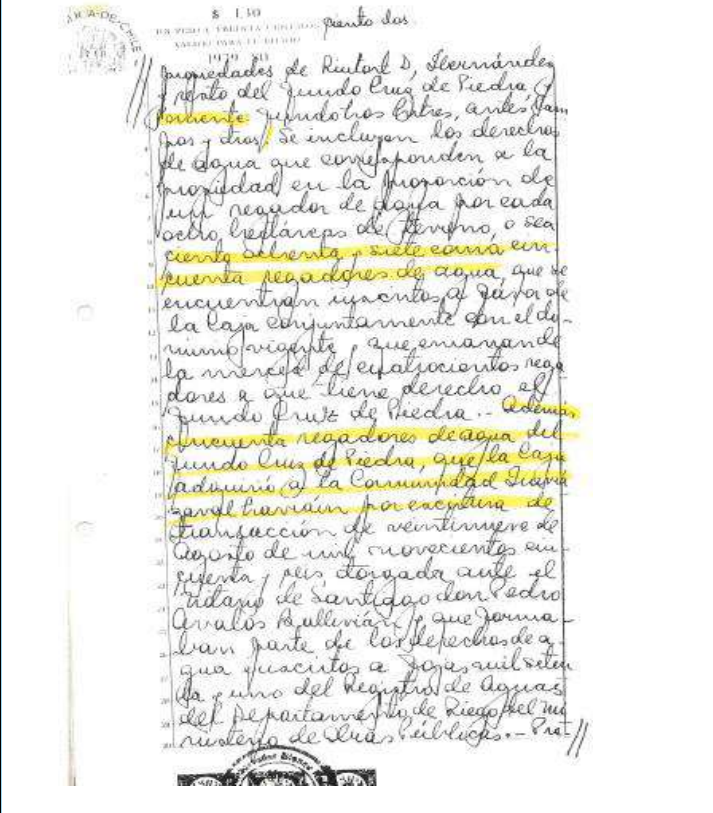 $ 1.30
ciento dos.
1979 - 80
propiedades de D, Hernández
y resto del fundo Cruz de Piedra, y
poniente fundo tres antes
y otros. Se incluyen los derechos
de agua que corresponden a la
propiedad en la proporción de
un regador de agua por cada
ocho hectáreas de terreno, o sea
ciento ochenta y siete coma cin
cuenta regadores de agua, que se
encuentran inscritos a favor de
la Caja conjuntamente con el do-
minio vigente, que emanan de
la merced de cuatrocientos rega
dores a que tiene derecho el
fundo Cruz de Piedra.- Además
cincuenta regadores de agua del
fundo Cruz de Piedra, que la Caja
adquirió a la Comunidad Irarrá
zaval por escritura de
transacción de veintinueve de
Agosto de mil novecientos cin-
cuenta y seis, otorgada ante el
Notario de Santiago don Pedro
Avalos Ballivián y que forma-
ban parte de los derechos de a-
gua inscritos a fojas mil seten
ta y uno del Registro de Aguas
del Departamento de Riego del Mi
nisterio de Obras Públicas.-